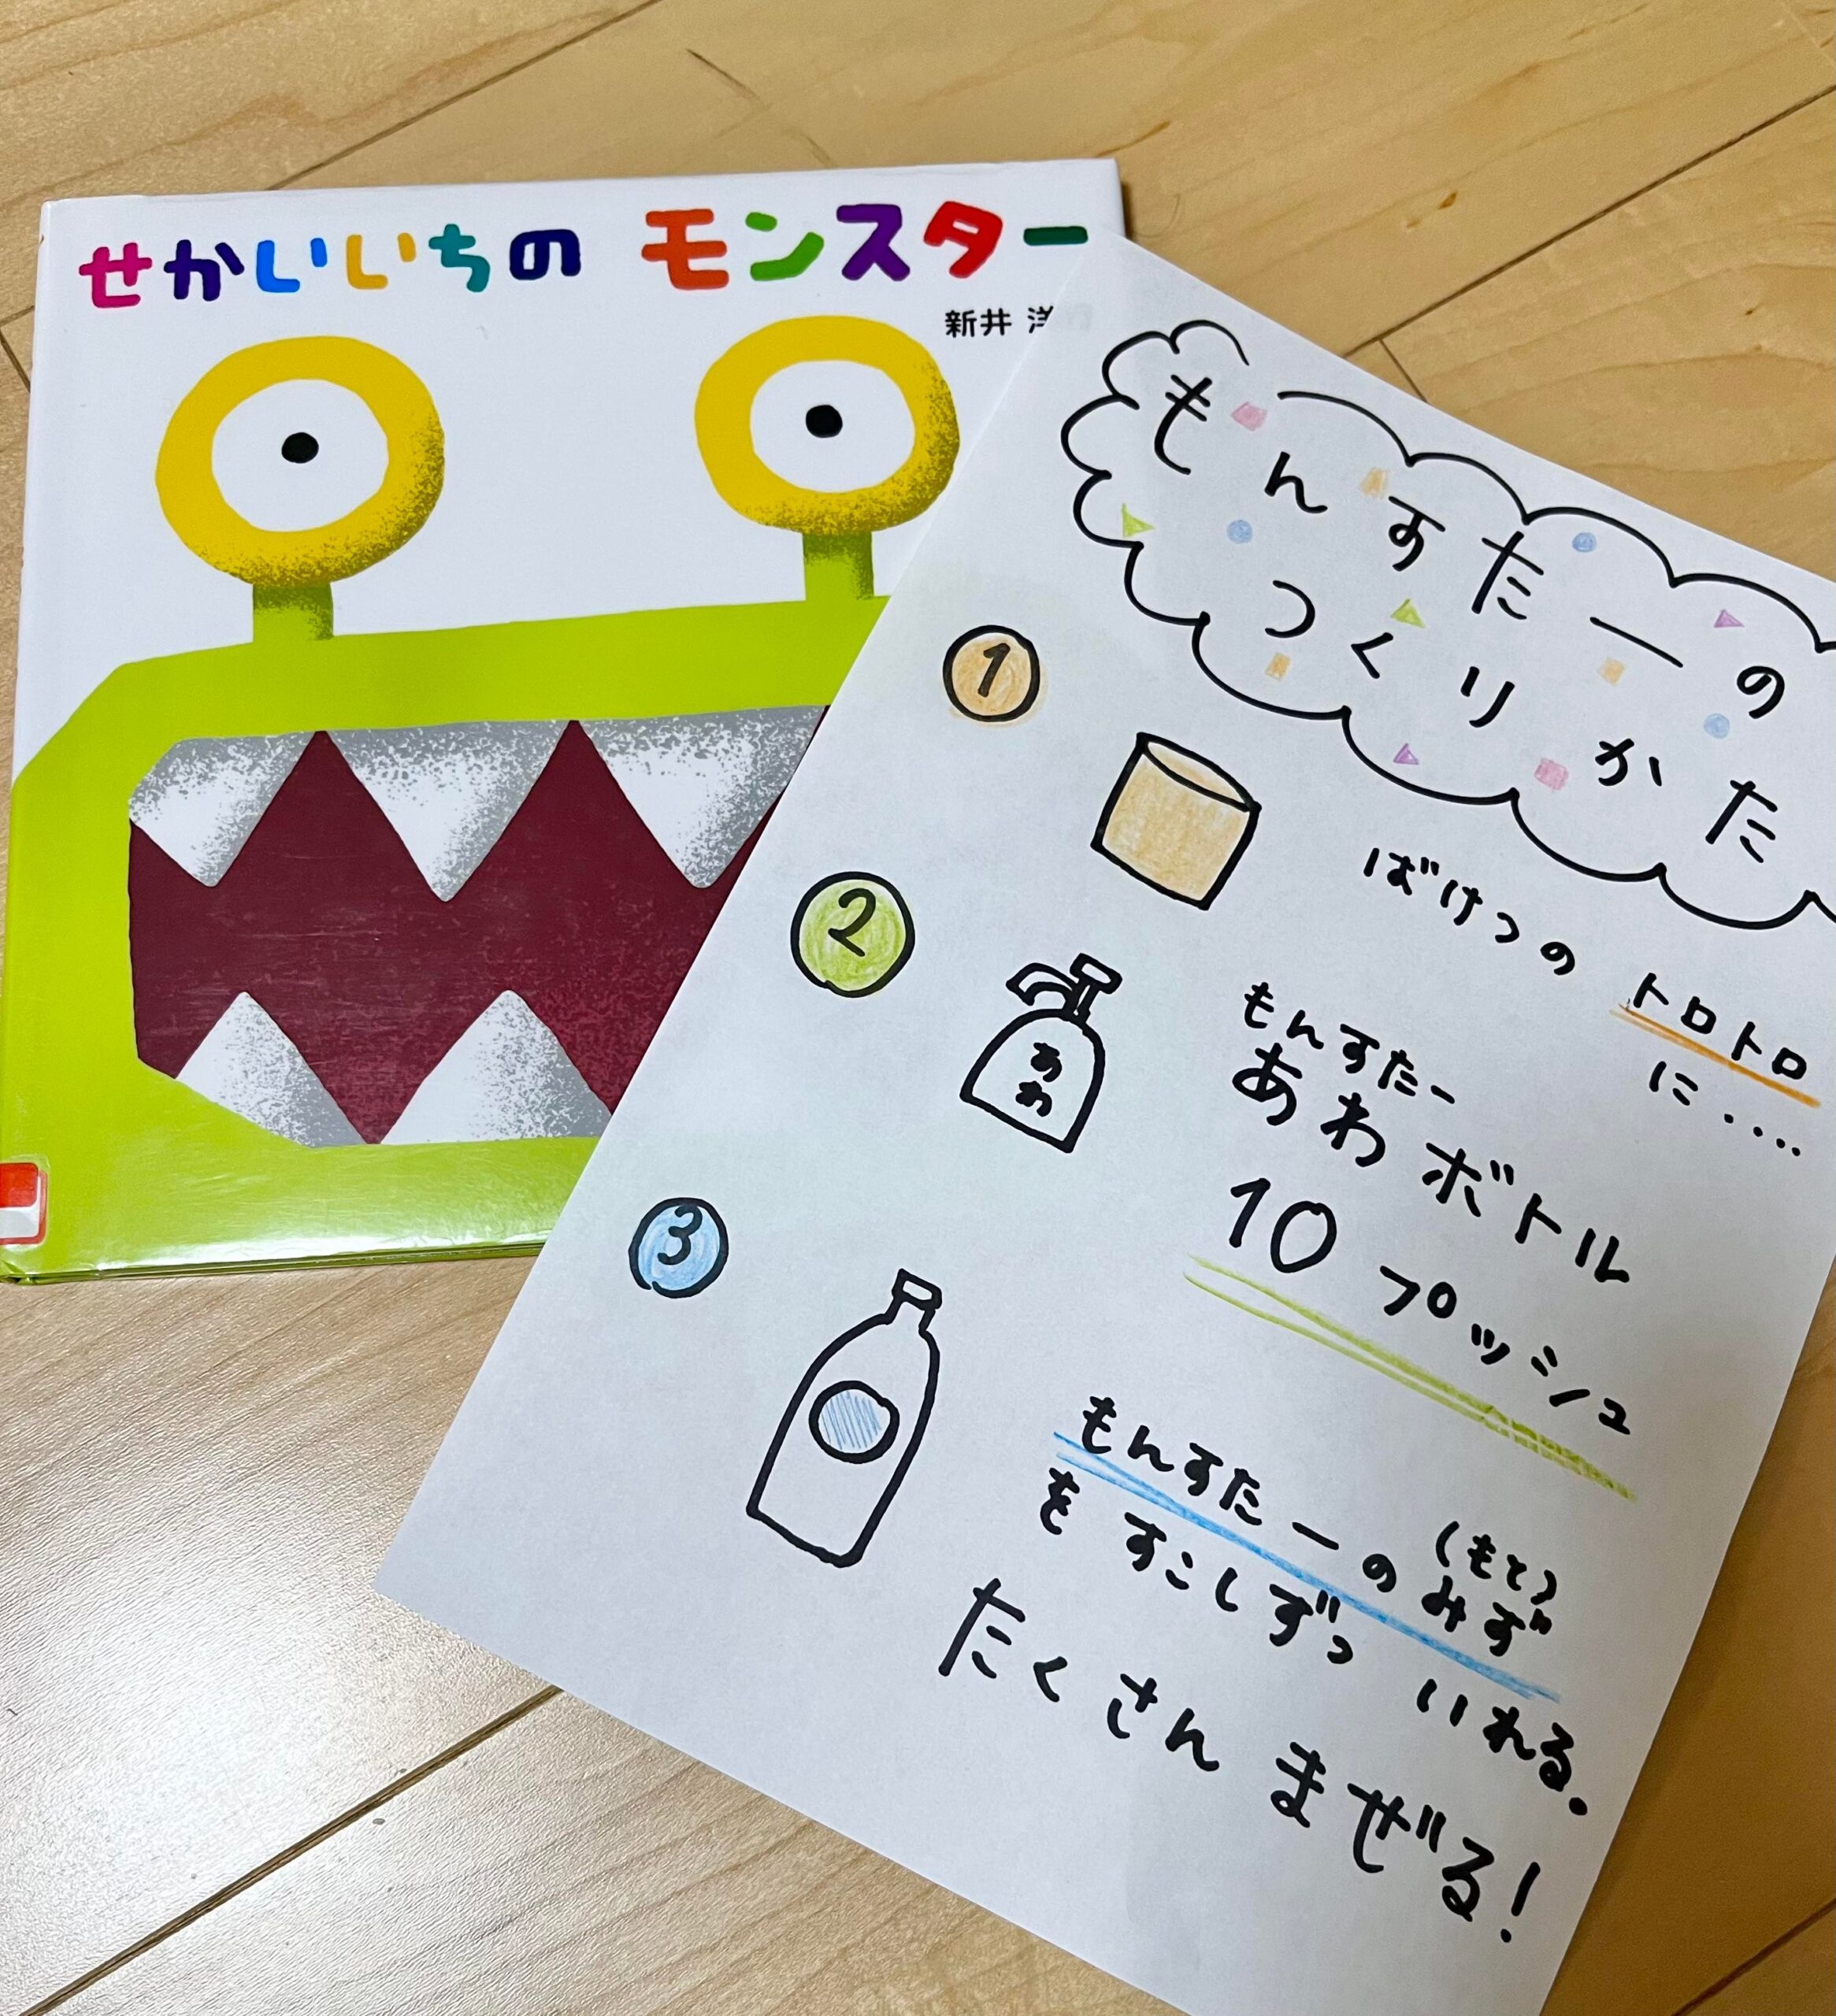 せかいいちの モンスター
新井 洋
もんすたーの
つくりかた
1
ばけつの トロトロ
に....
2
あわ
もんすたー
あわボトル
10 プッシュ
3
もんすたーのみず(もと)
をすこしずつ いれる。
たくさん まぜる!